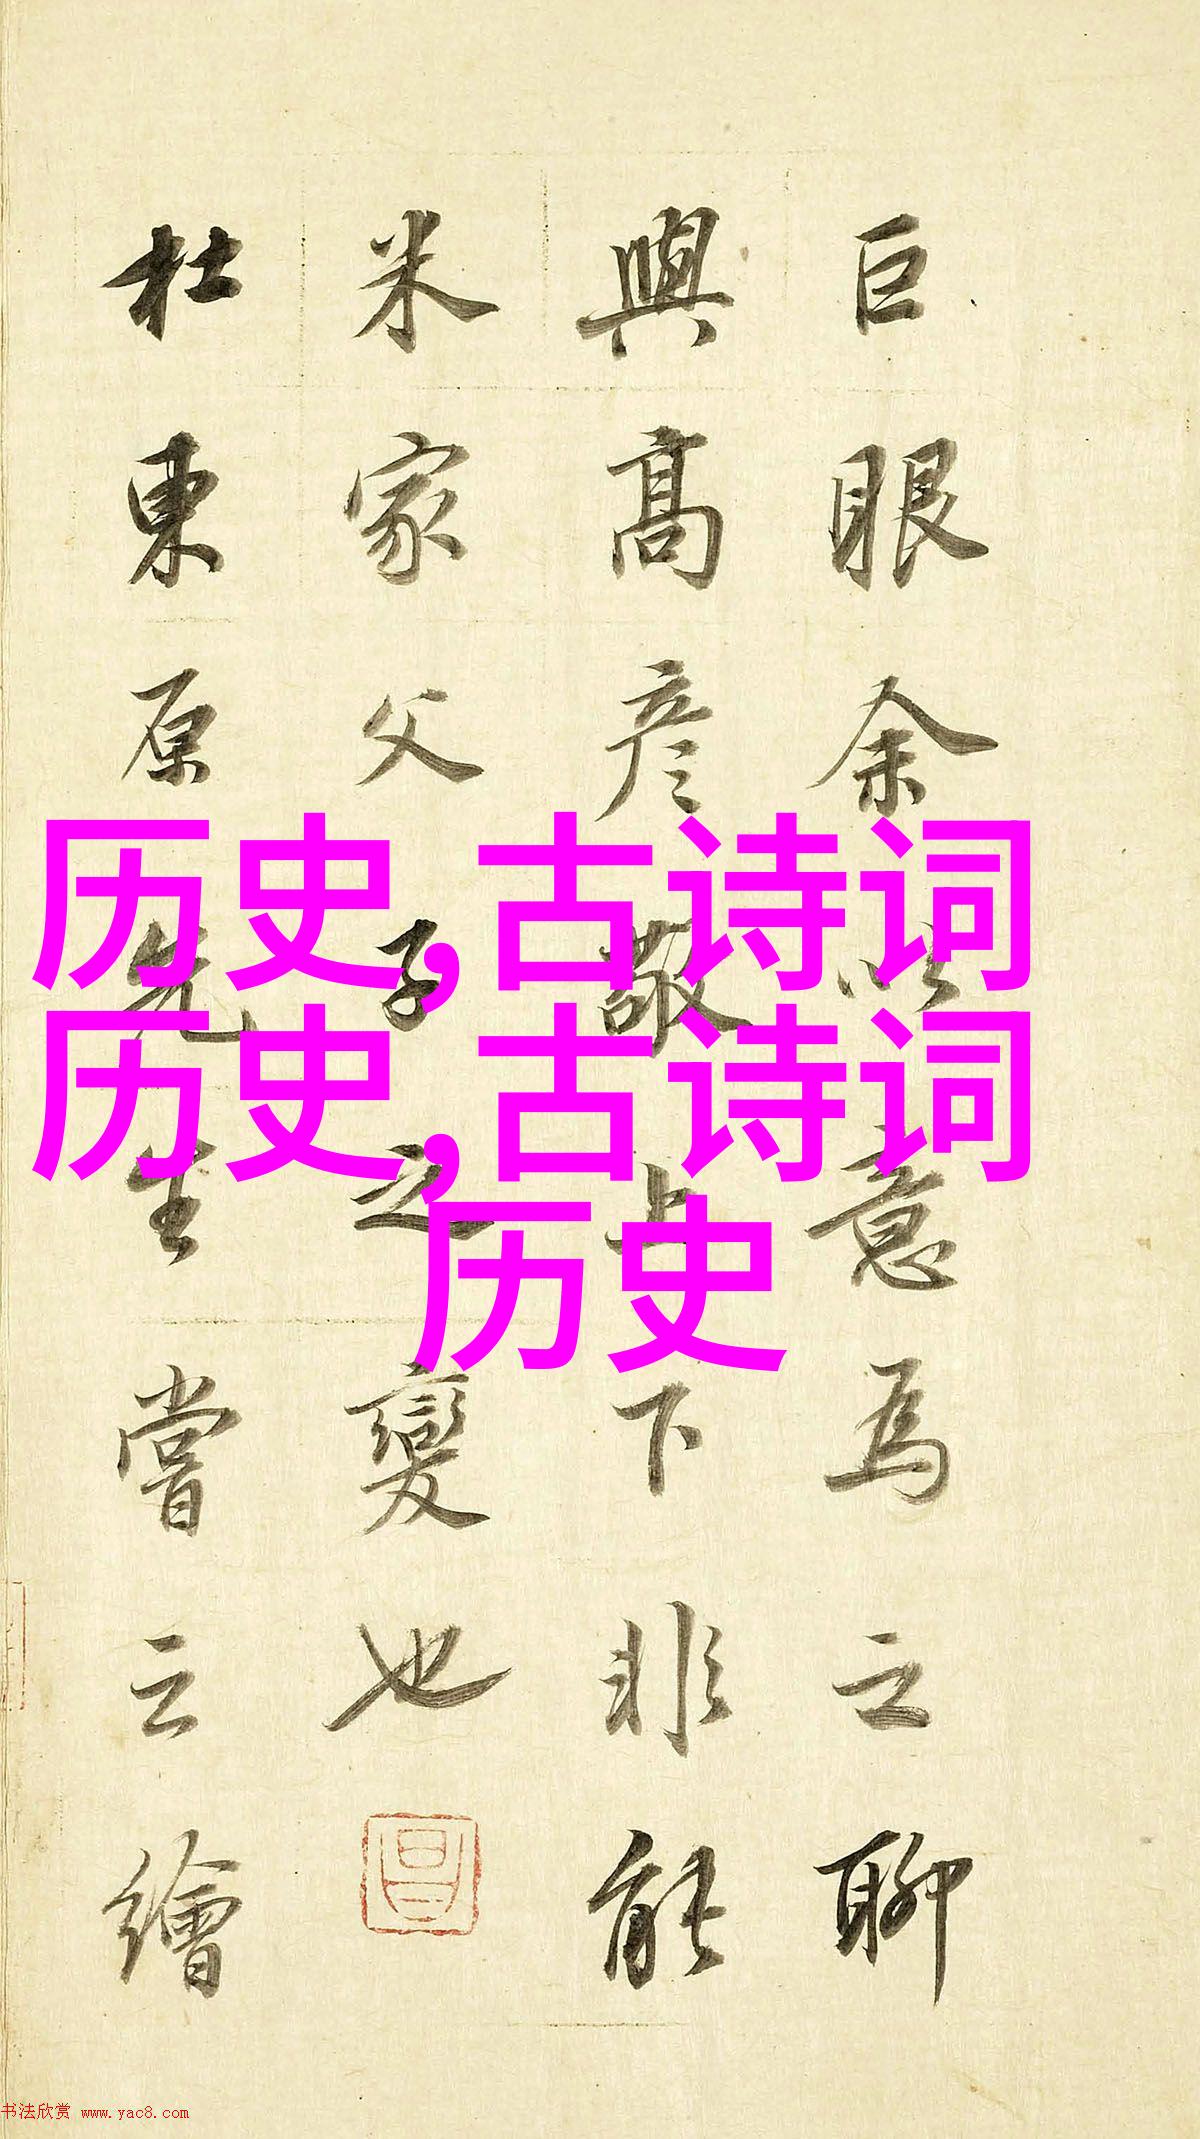 巨眼余以意為之聊
與高彦敬上下非能
米家父子之變也
杜東原先生嘗云繪
历史,古诗词
历史,古诗词
历史
书法欣赏 www.yac8.com